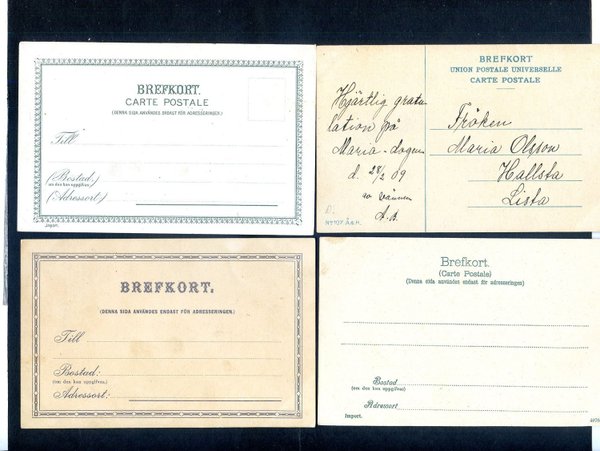 BREFKORT.
CARTE POSTALE
(DENNA SIDA ANVÄNDES ENDAST FÖR ADRESSERINGEN.)
Till
(Bostad:)
(om den kan uppgifvas)
(Adressort:)
Import.
BREFKORT
UNION POSTALE UNIVERSELLE
CARTE POSTALE
Hjärtlig gratu
lation på
Maria-dagen
d. 28/2 09
av vännen
A. B
Fröken
Maria Olsson
Hallsta
Lista
No 107 Å & H.
BREFKORT.
(DENNA SIDA ANVÄNDES ENDAST FÖR ADRESSERINGEN.)
Till
Bostad:
(om den kan uppgifvas.)
Adressort:
Brefkort.
(Carte Postale)
(Denna sida användes endast för adresseringen)
Bostad
(om den kan uppgifvas)
Adressort
Import.